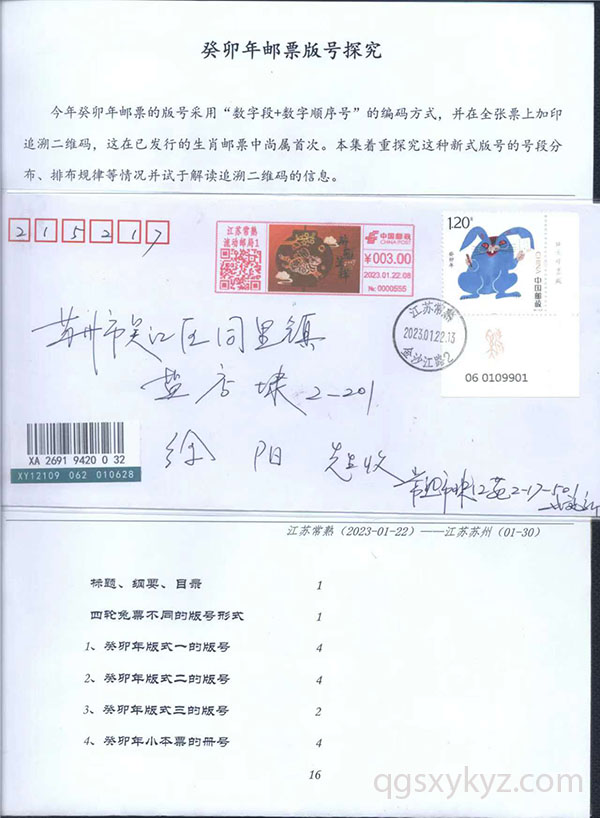 癸卯年邮票版号探究
今年癸卯年邮票的版号采用“数字段+数字顺序号”的编码方式，并在全张票上加印
追溯二维码，这在已发行的生肖邮票中尚属首次。本集着重探究这种新式版号的号段分
布、排布规律等情况并试于解读追溯二维码的信息。
215217
江苏常熟
流动邮局1
中国邮政
CHINA POST
¥003.00
2023.01.22.08
№:0000555
1.20元
CHINA
中国邮政
06 0109901
江苏常熟
2023.01.22.13
金沙江路2
苏州市吴江区同里镇
2-201
徐 阳 先生收
XA 2691 9420 0 32
XY12109 062 010628
2-17-501
江苏常熟（2023-01-22）——江苏苏州（01-30）
标题、纲要、目录 1
四轮兔票不同的版号形式 1
1、癸卯年版式一的版号 4
2、癸卯年版式二的版号 4
3、癸卯年版式三的版号 2
4、癸卯年小本票的册号 4
16
qgsxykyz.com